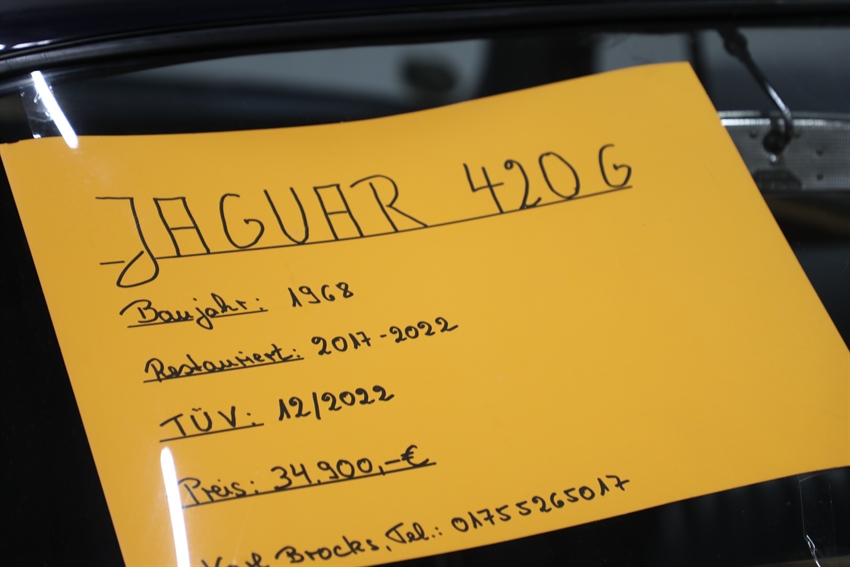 JAGUAR 420 G
Baujahr: 1968
Restauriert: 2017-2022
TÜV: 12/2022
Preis: 34.900,-€
Brocks, Tel.: 01755265017